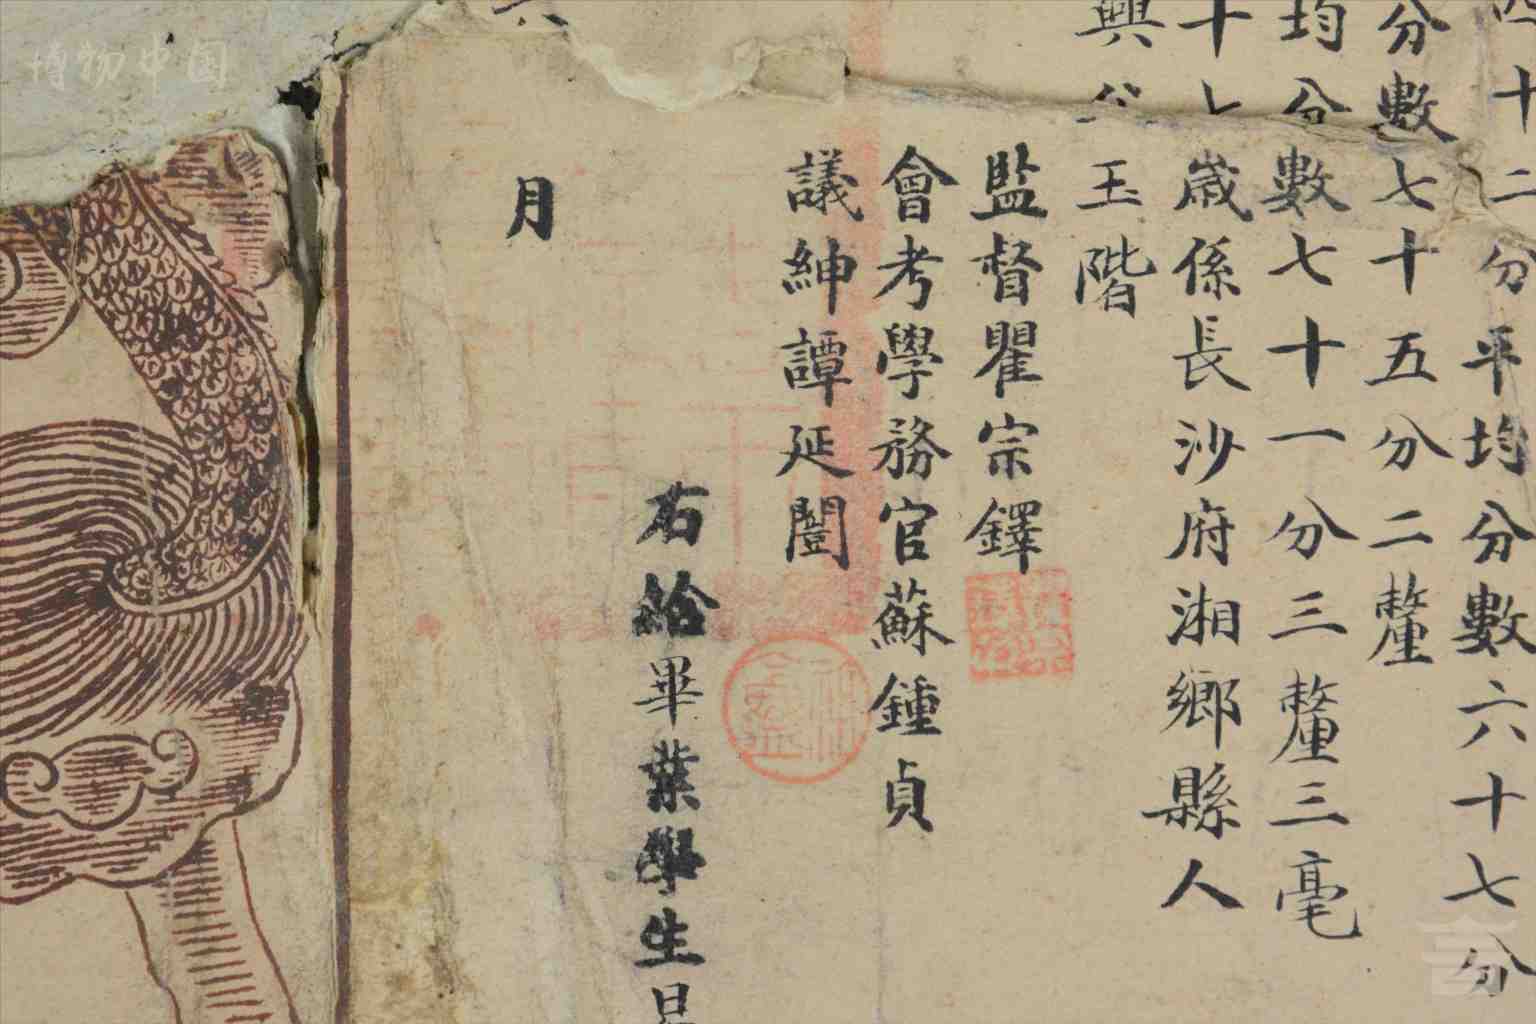 四十二分平均分數六十七分
分數七十五分二釐
均分數七十一分三釐三毫
十七歲係長沙府湘鄉縣人
興 玉階
監督瞿宗鐸
會考學務官蘇鍾貞
議紳譚延闓
右給畢業學生
月
博物中国